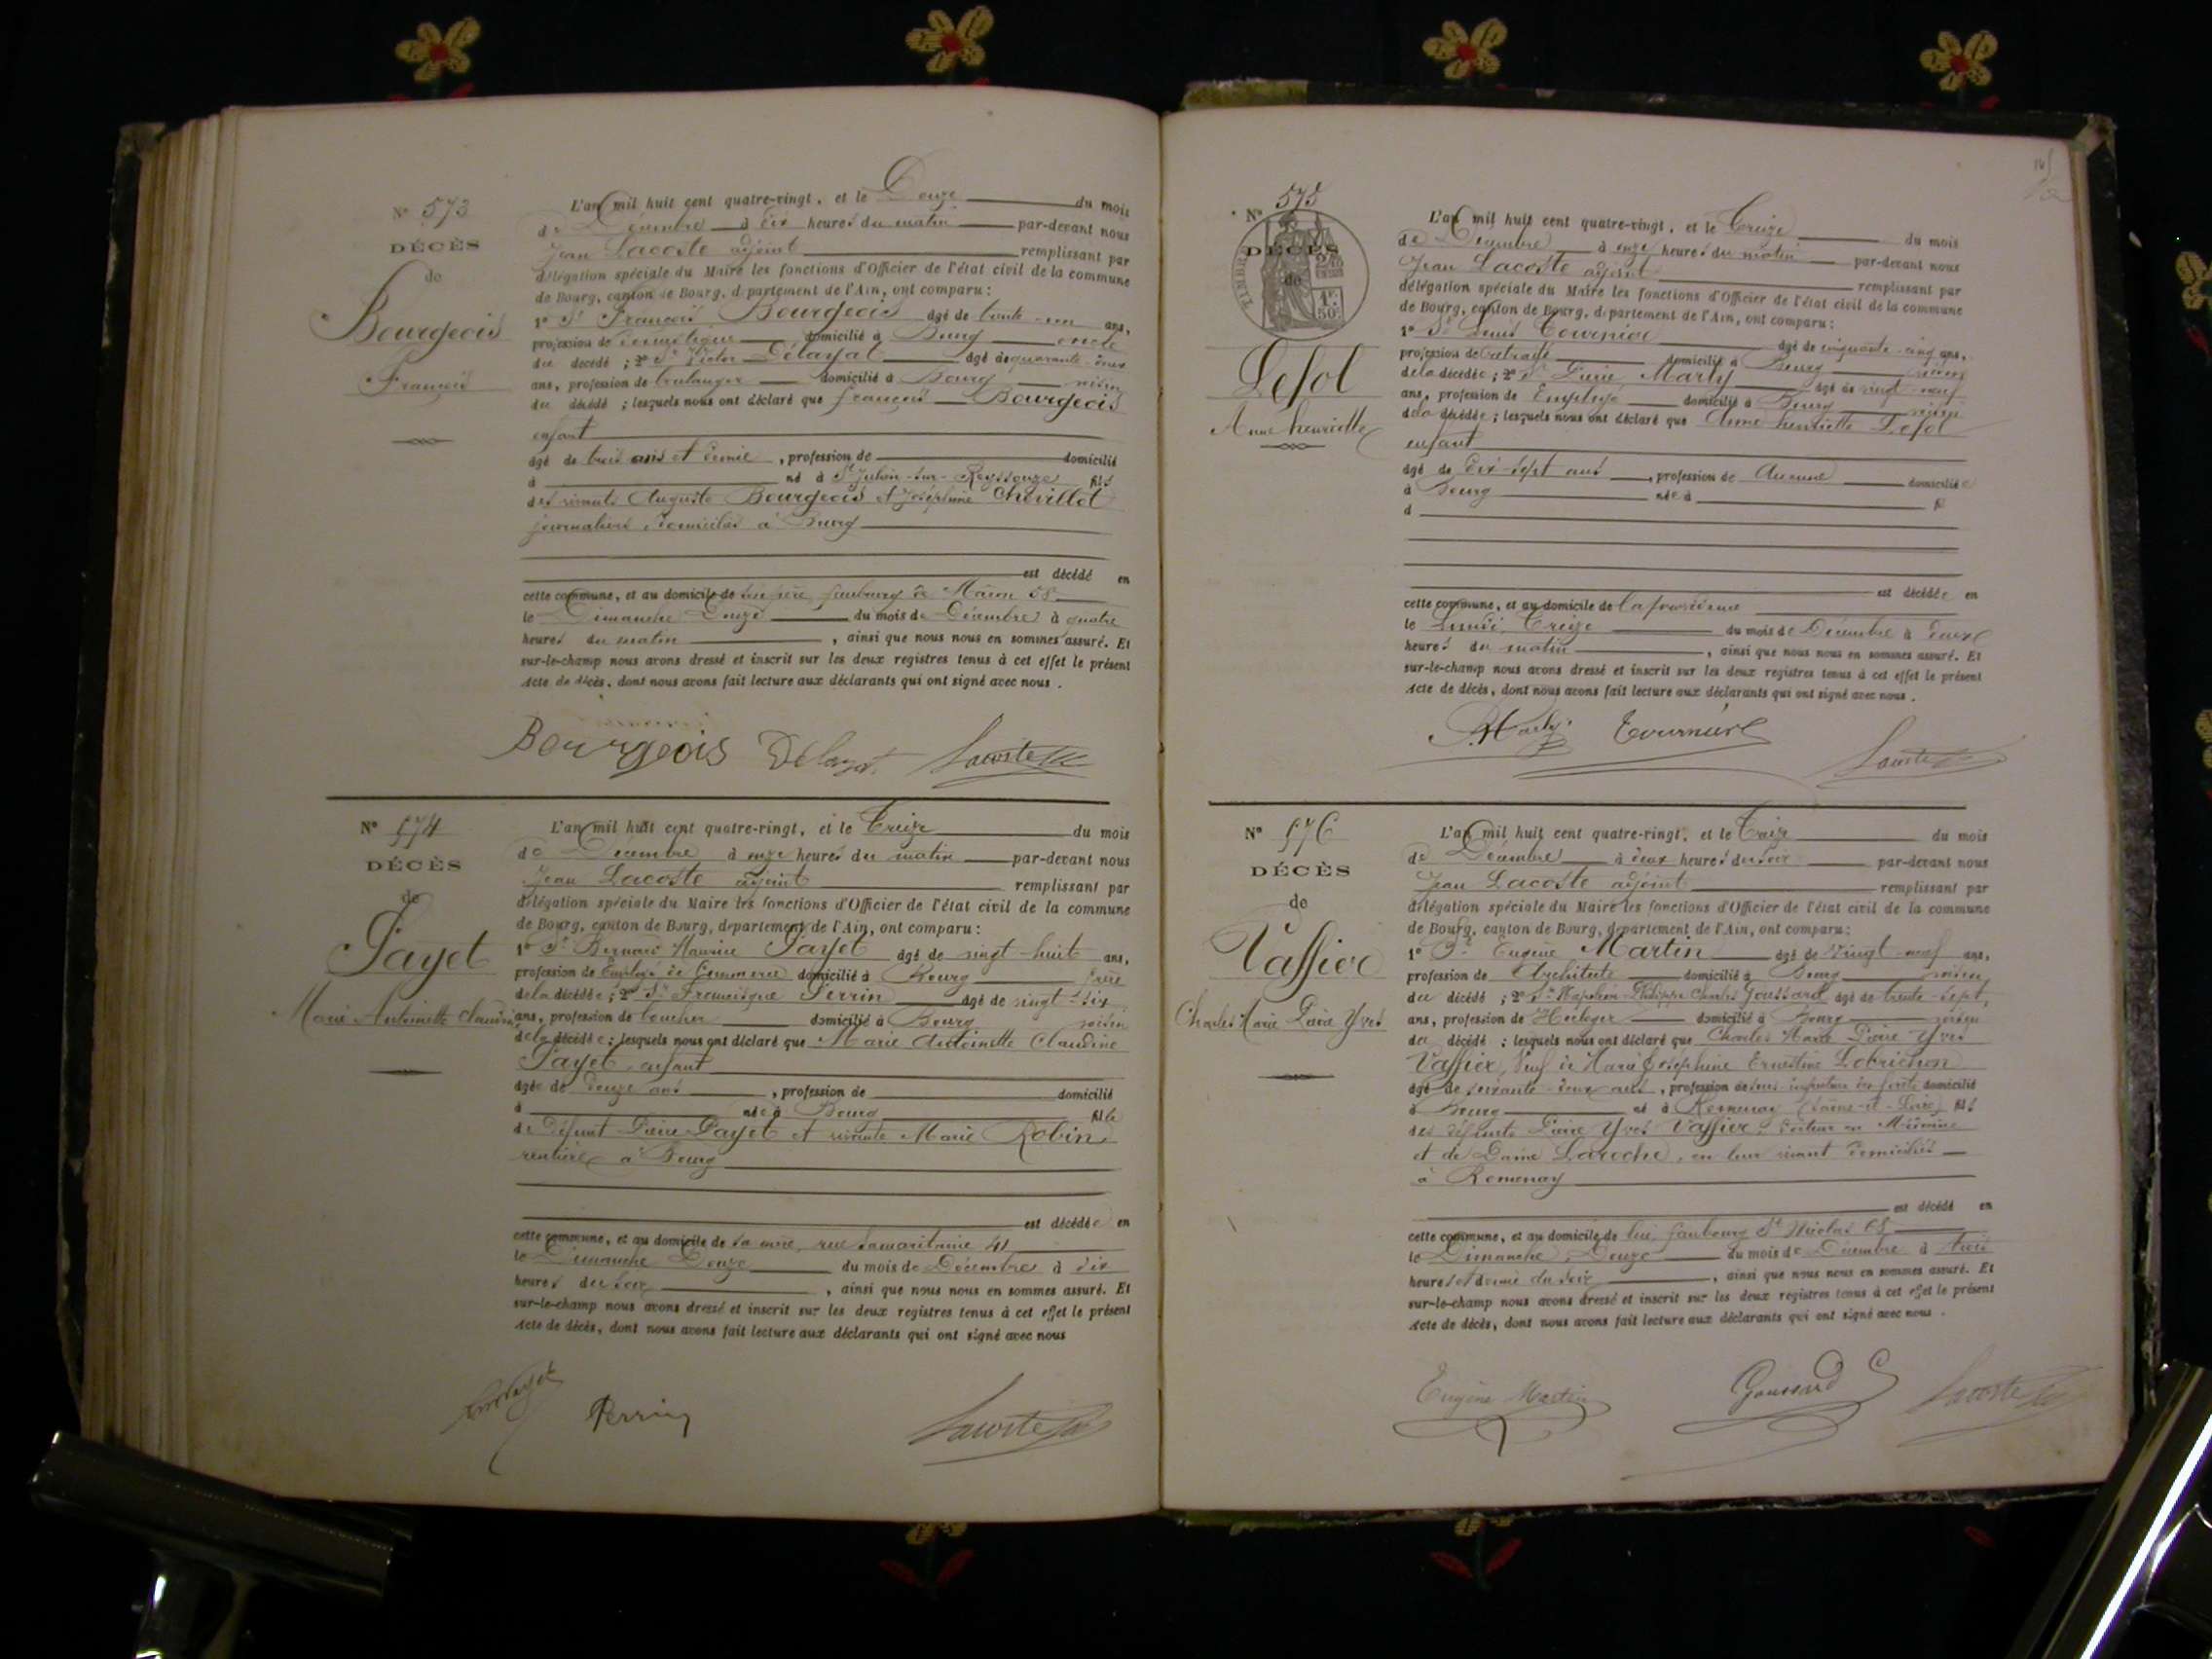 N° 573
DÉCÈS
de
Bourgeois
François
L'an mil huit cent quatre-vingt, et le Douze du mois
de Décembre à dix heures du matin par-devant nous
Jean Lacoste adjoint remplissant par
délégation spéciale du Maire les fonctions d'Officier de l'état civil de la commune
de Bourg, canton de Bourg, département de l'Ain, ont comparu :
1° Sr François Bourgeois âgé de trente-un ans,
profession de domestique domicilié à Bourg oncle
du décédé ; 2° Sr Victor Délayat âgé de quarante-deux
ans, profession de boulanger domicilié à Bourg voisin
du décédé ; lesquels nous ont déclaré que françois Bourgeois
enfant
âgé de trois ans et demie, profession de domicilié
à né à St Julien-sur-Reyssouze fils
des vivants Auguste Bourgeois et Joséphine Chevillot
journaliers domiciliés à Bourg
est décédé en
cette commune, et au domicile de son père, faubourg de Mâcon 58
le Dimanche Douze du mois de Décembre à quatre
heures du matin, ainsi que nous nous en sommes assuré. Et
sur-le-champ nous avons dressé et inscrit sur les deux registres tenus à cet effet le présent
Acte de décès, dont nous avons fait lecture aux déclarants qui ont signé avec nous.
Bourgeois Délayat Lacoste
N° 574
DÉCÈS
de
Payet
Marie Antoinette Claudine
L'an mil huit cent quatre-vingt, et le Treize du mois
de Décembre à onze heures du matin par-devant nous
Jean Lacoste adjoint remplissant par
délégation spéciale du Maire les fonctions d'Officier de l'état civil de la commune
de Bourg, canton de Bourg, département de l'Ain, ont comparu :
1° Sr Bernard Maurice Payet âgé de vingt-huit ans,
profession de Employé de Commerce domicilié à Bourg frère
de la décédée ; 2° Sr Francisque Perrin âgé de vingt-six
ans, profession de boucher domicilié à Bourg voisin
de la décédée ; lesquels nous ont déclaré que Marie Antoinette Claudine
Payet, enfant
âgée de douze ans, profession de domicilié
à née à Bourg fille
de défunt Pierre Payet et vivante Marie Robin
rentière à Bourg
est décédée en
cette commune, et au domicile de sa mère, rue Samaritaine 41
le Dimanche Douze du mois de Décembre à dix
heures du soir, ainsi que nous nous en sommes assuré. Et
sur-le-champ nous avons dressé et inscrit sur les deux registres tenus à cet effet le présent
Acte de décès, dont nous avons fait lecture aux déclarants qui ont signé avec nous
Payet Perrin Lacoste
N° 575
DÉCÈS
de
TIMBRE
1F. 50c
Lefol
Anne henriette
L'an mil huit cent quatre-vingt, et le Treize du mois
de Décembre à onze heures du matin par-devant nous
Jean Lacoste adjoint remplissant par
délégation spéciale du Maire les fonctions d'Officier de l'état civil de la commune
de Bourg, canton de Bourg, département de l'Ain, ont comparu :
1° Sr Louis Tournier âgé de cinquante-cinq ans,
profession de retraité domicilié à Bourg voisin
de la décédée ; 2° Sr Pierre Marly âgé de vingt-neuf
ans, profession de Employé domicilié à Bourg voisin
de la décédée ; lesquels nous ont déclaré que Anne henriette Lefol
enfant
âgé de dix-sept ans, profession de Aucune domiciliée
à Bourg née à fil
d
est décédée en
cette commune, et au domicile de la providence
le Lundi Treize du mois de Décembre à deux
heures du matin, ainsi que nous nous en sommes assuré. Et
sur-le-champ nous avons dressé et inscrit sur les deux registres tenus à cet effet le présent
Acte de décès, dont nous avons fait lecture aux déclarants qui ont signé avec nous.
Marly Lacoste
N° 576
DÉCÈS
de
Vaffier
Charles Marie Pierre Yves
L'an mil huit cent quatre-vingt, et le Treize du mois
de Décembre à deux heures du soir par-devant nous
Jean Lacoste adjoint remplissant par
délégation spéciale du Maire les fonctions d'Officier de l'état civil de la commune
de Bourg, canton de Bourg, département de l'Ain, ont comparu :
1° Sr Eugène Martin âgé de vingt-neuf ans,
profession de Architecte domicilié à Bourg voisin
du décédé ; 2° Sr Napoléon-Philippe Charles Goussard âgé de trente-sept,
ans, profession de Horloger domicilié à Bourg voisin
du décédé ; lesquels nous ont déclaré que Charles Marie Pierre Yves
Vaffier, Veuf de Marie Joséphine Ernestine Lobrichon
âgé de soixante-deux ans, profession de sous-inspecteur des forêts domicilié
à Bourg né à Romenay (Saône-et-Loire) fils
des défunts Pierre Yves Vaffier, docteur en Médecine
et de Dame Laroche, en leur vivant domiciliés
à Romenay
est décédé en
cette commune, et au domicile de lui, faubourg St Nicolas 68
le Dimanche Douze du mois de Décembre à trois
heures et demie du soir, ainsi que nous nous en sommes assuré. Et
sur-le-champ nous avons dressé et inscrit sur les deux registres tenus à cet effet le présent
Acte de décès, dont nous avons fait lecture aux déclarants qui ont signé avec nous.
Eugène Martin Goussard Lacoste